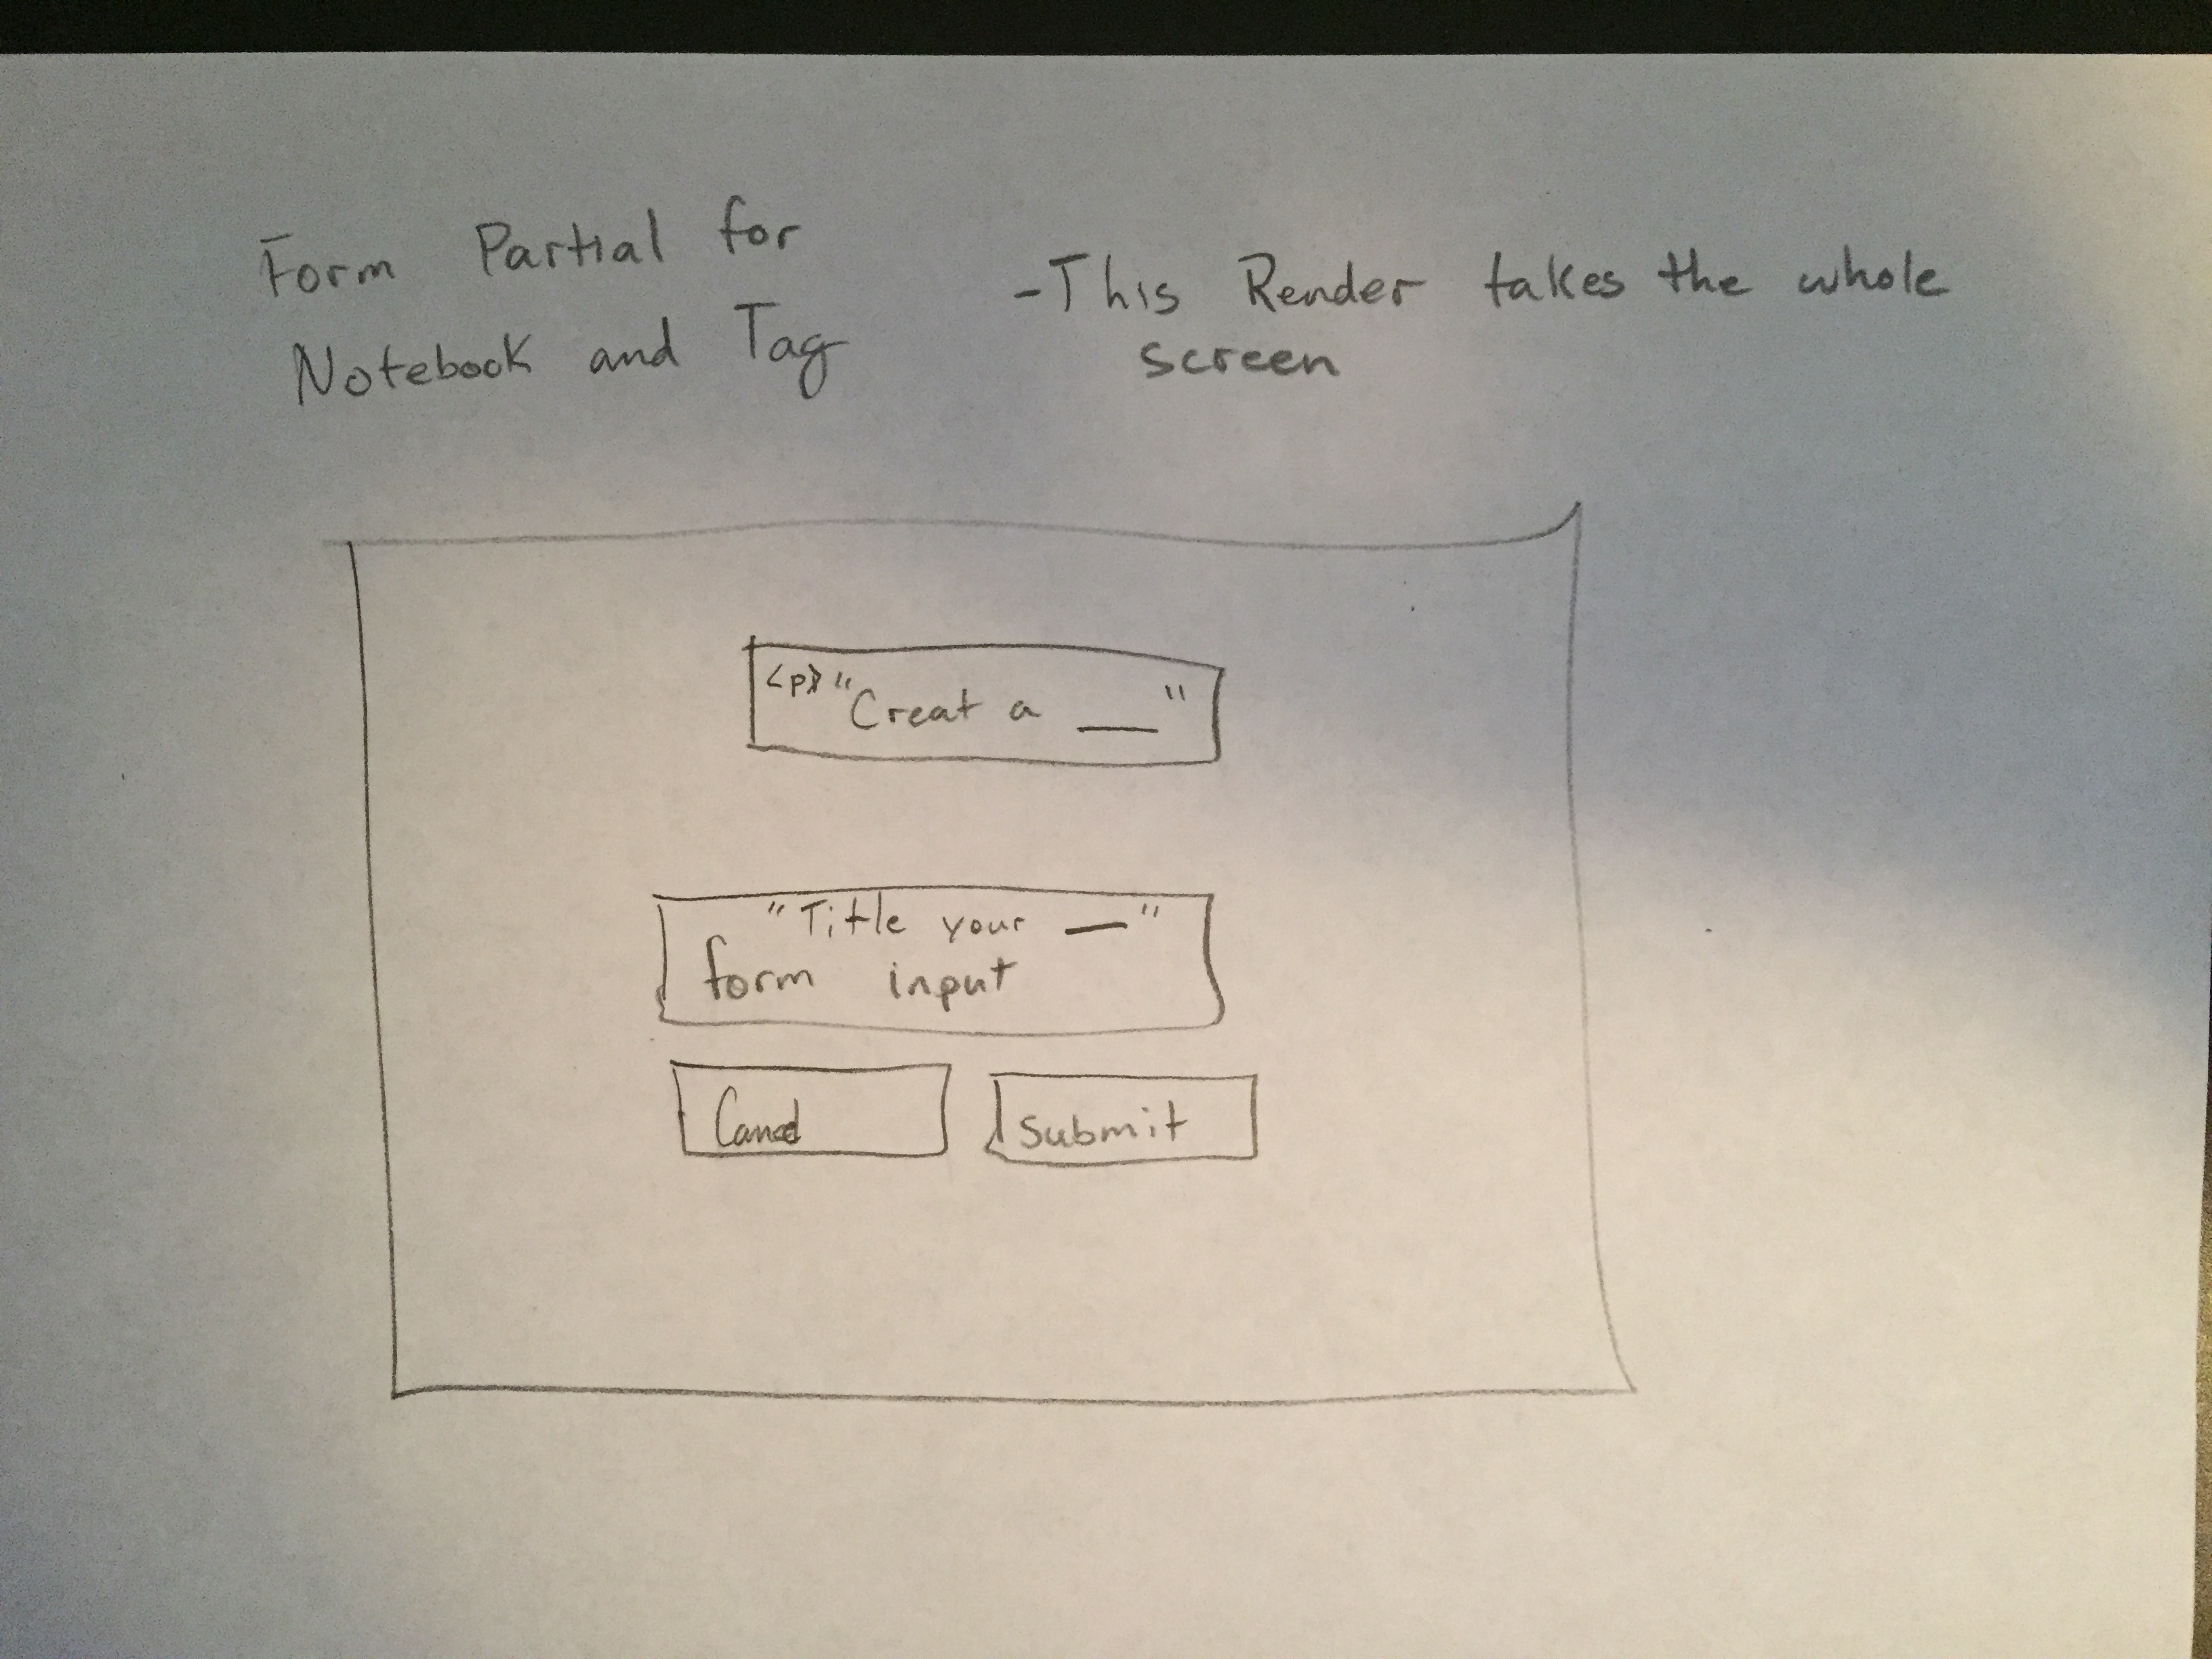 Form Partial for
Notebook and Tag
-This Render takes the whole
screen
<p> "Creat a ___"
"Title your __"
form input
Cancel
Submit